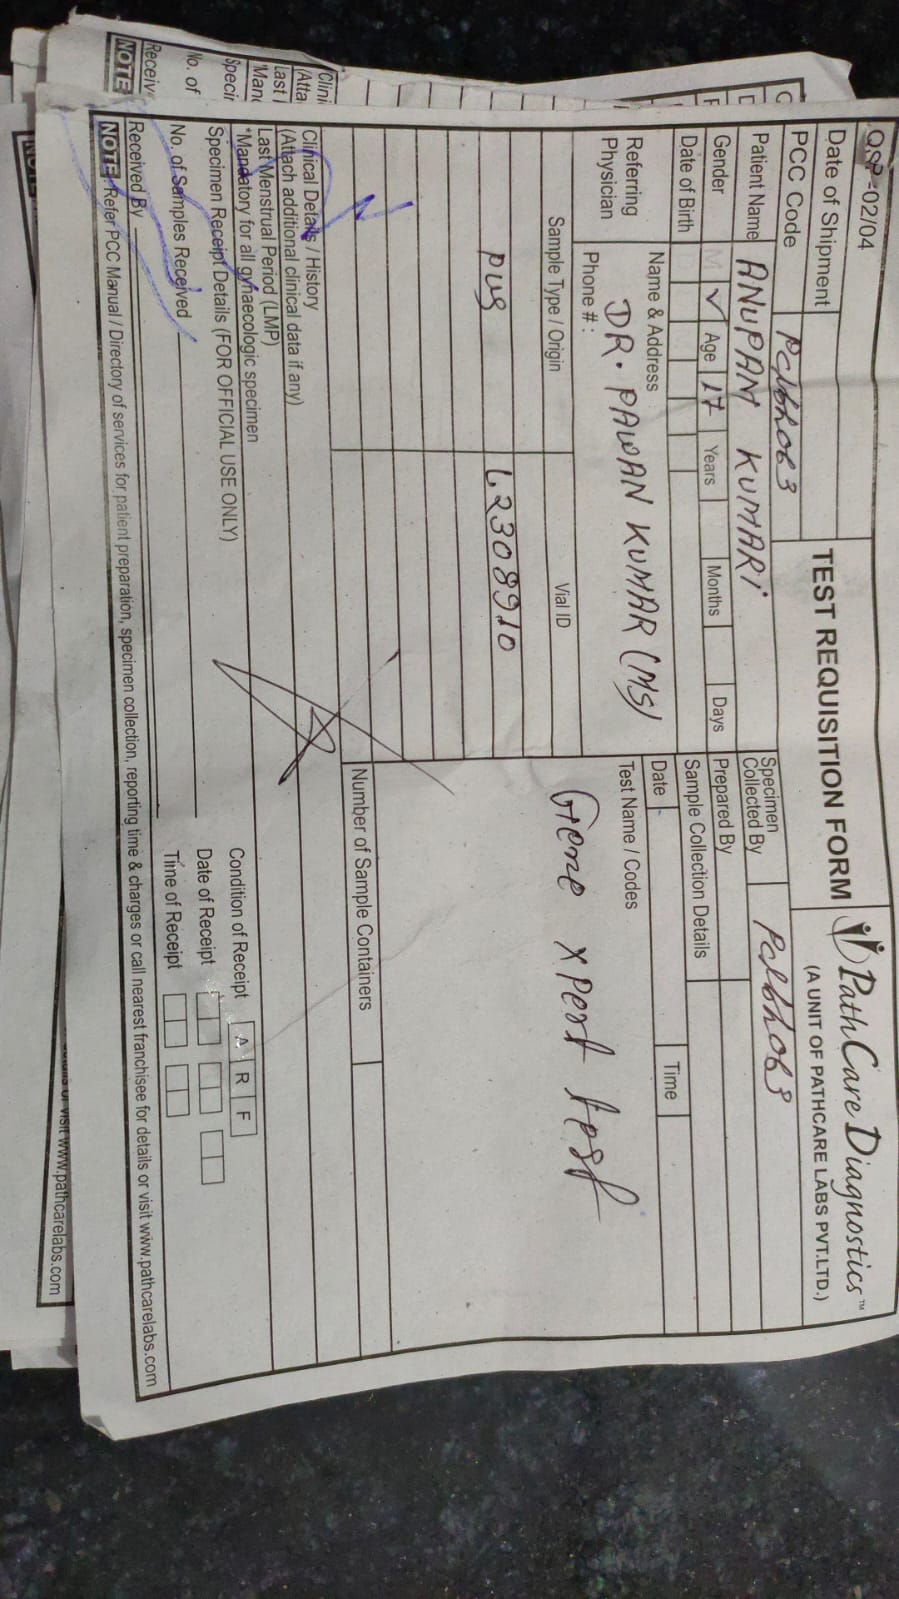 QSP-02/04
Date of Shipment
PCC Code
TEST REQUISITION FORM
PathCare Diagnostics™
(A UNIT OF PATHCARE LABS PVT.LTD.)
Patient Name ANUPAM KUMARI
Specimen Collected By
Gender M ✓ Age 17 Years Months Days
Prepared By
Date of Birth
Sample Collection Details
Date Time
Referring Physician
Name & Address
DR. PAWAN KUMAR (MS)
Phone # :
Test Name / Codes
Gene xpert test
Sample Type / Origin Vial ID
pus L2308910
Number of Sample Containers
Clinical Details / History
(Attach additional clinical data if any)
Last Menstrual Period (LMP)
*Mandatory for all gynaecologic specimen
Specimen Receipt Details (FOR OFFICIAL USE ONLY)
Condition of Receipt A R F
No. of Samples Received
Date of Receipt
Received By
Time of Receipt
NOTE Refer PCC Manual / Directory of services for patient preparation, specimen collection, reporting time & charges or call nearest franchisee for details or visit www.pathcarelabs.com
visit www.pathcarelabs.com